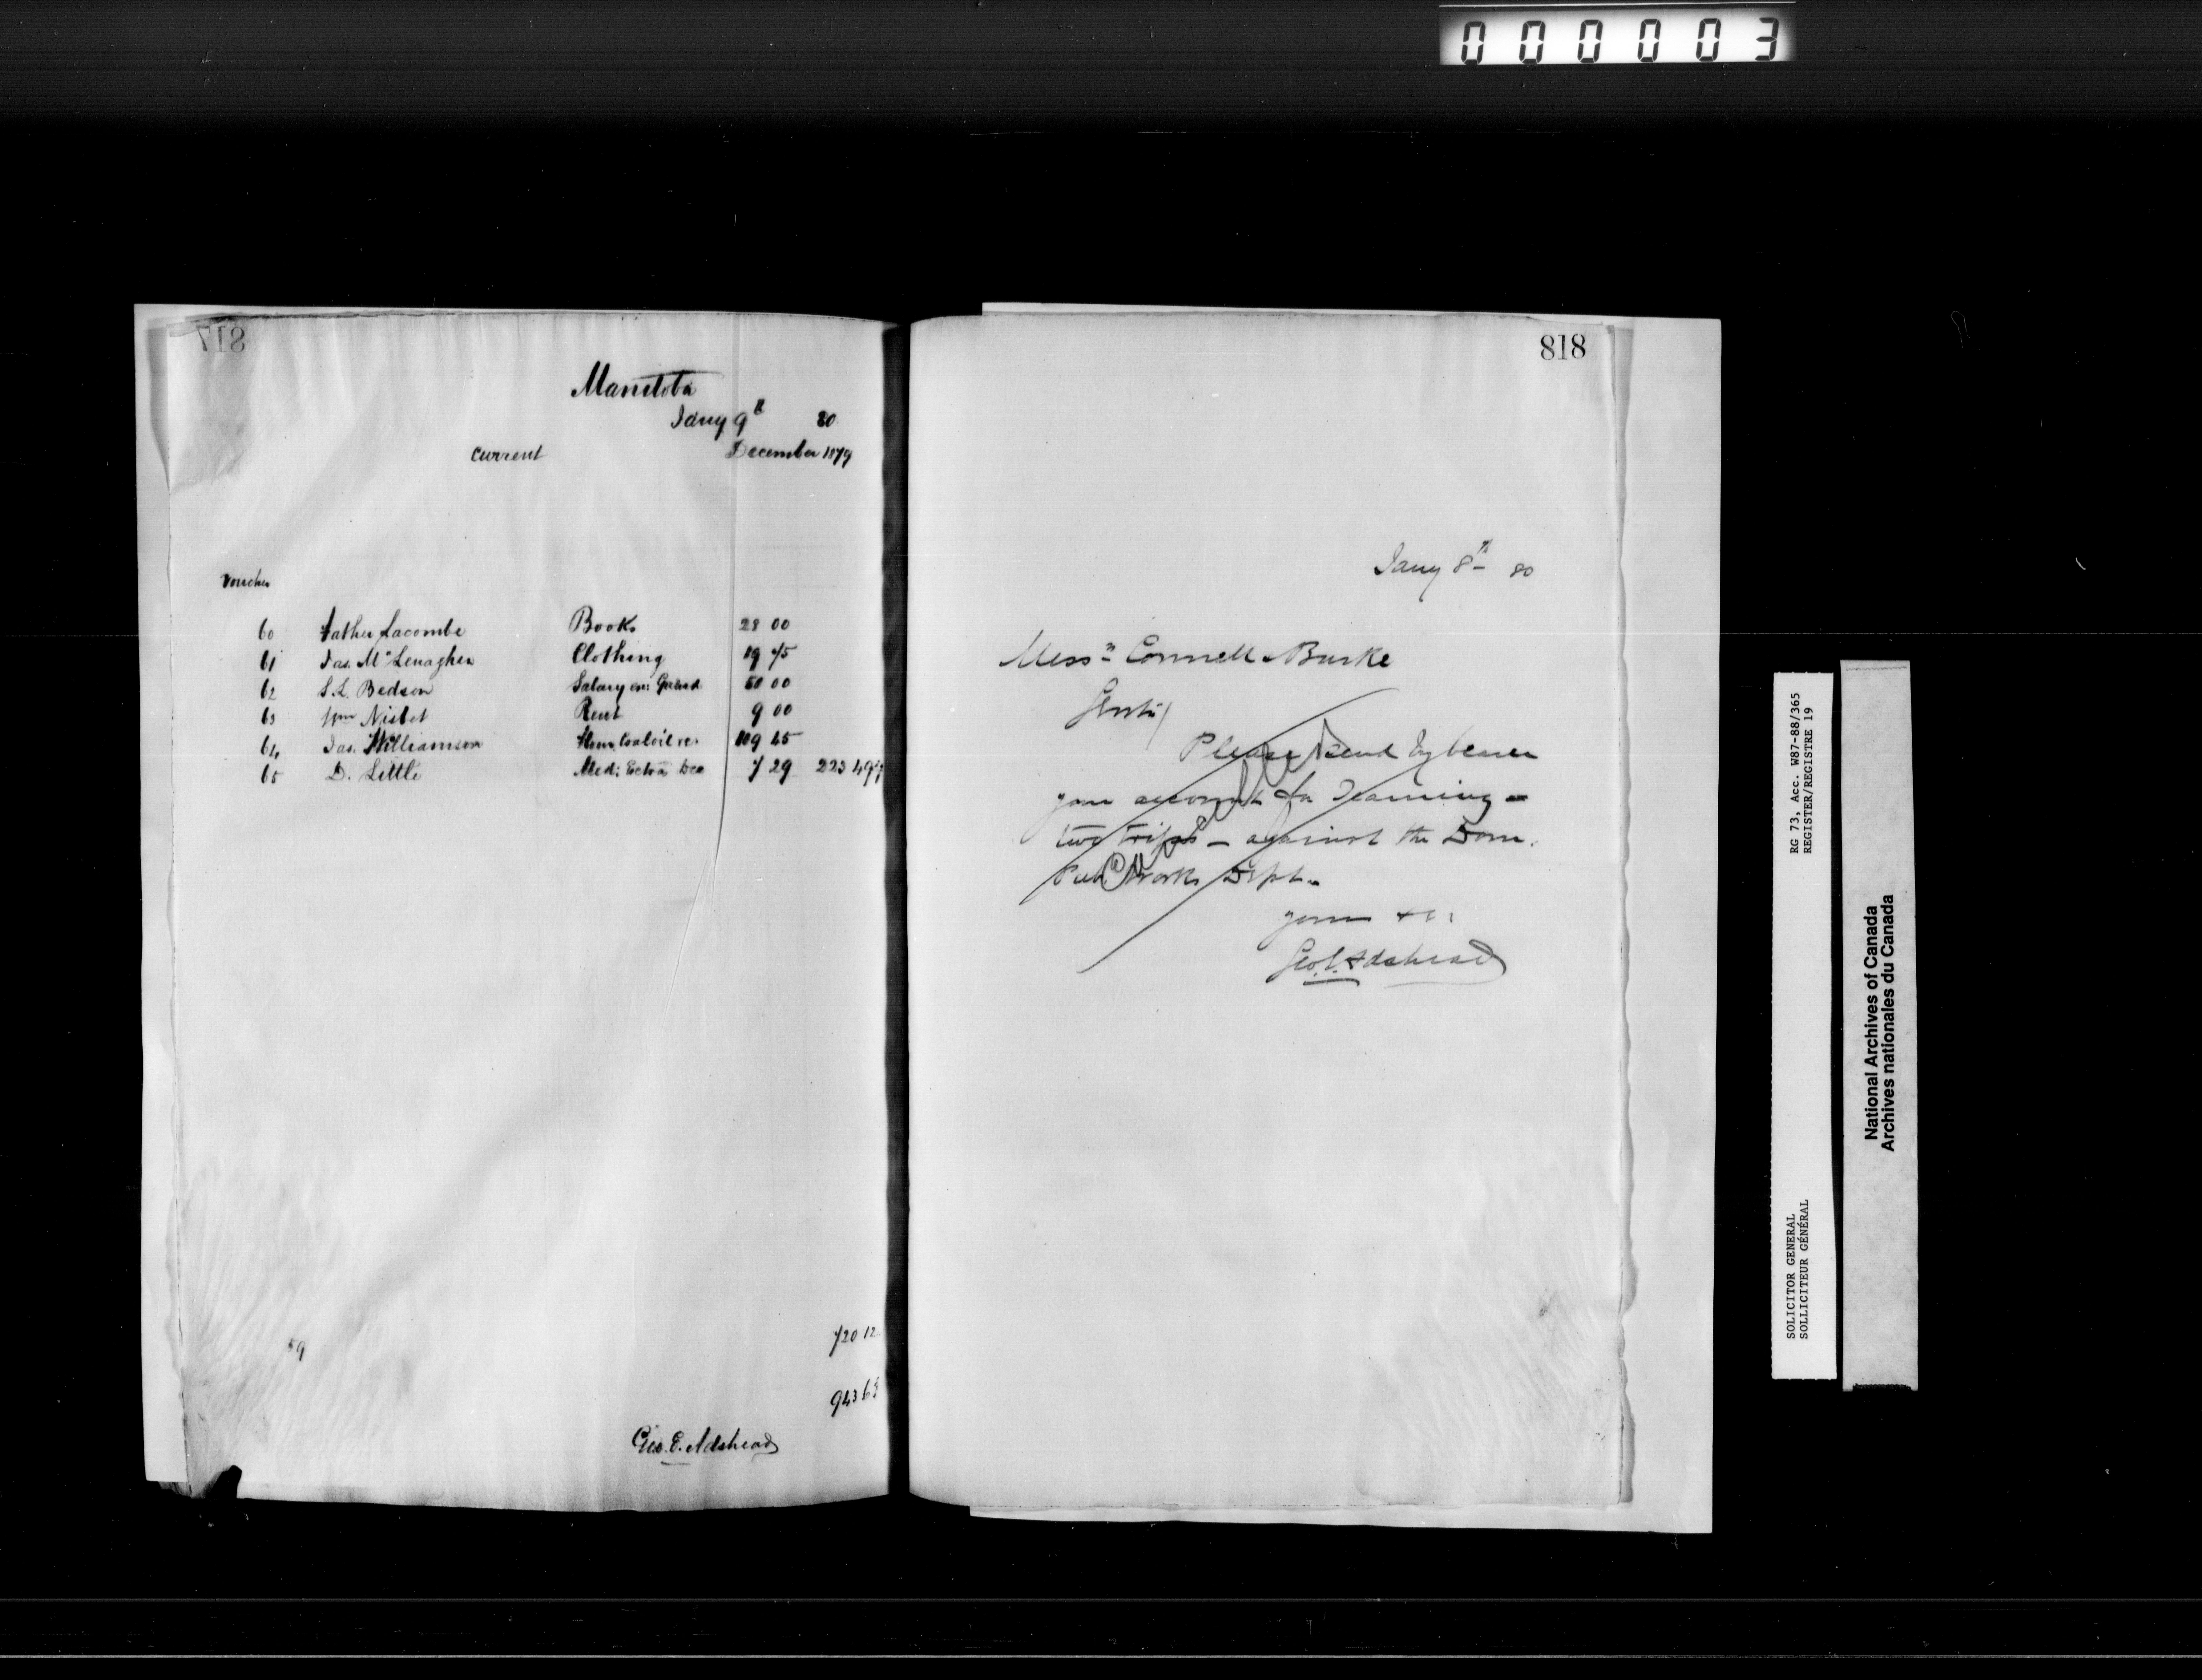 000003
817
Manitoba
Jany 9th 80
Current December 1879
Voucher
60 Father Lacombe Books 28 00
61 Jas. McLenaghen Clothing 19 75
62 S.L. Bedson Salary 50 00
63 Wm Nisbet Rent 9 00
64 Jas. Williamson 109 45
65 D. Little Med: Extra Dec 7 29 223 49
59 720 12
943 61
Geo. E. Adshead
818
Jany 8th 80
Messrs Connell & Burke
Gents/
Please send by bearer
your account for Teaming -
two trips - against the Dom.
Pub. Works Dept.
yours &c:
Geo. E. Adshead
Cancelled
RG 73, Acc. W87-88/365
REGISTER/REGISTRE 19
SOLICITOR GENERAL
SOLLICITEUR GÉNÉRAL
National Archives of Canada
Archives nationales du Canada